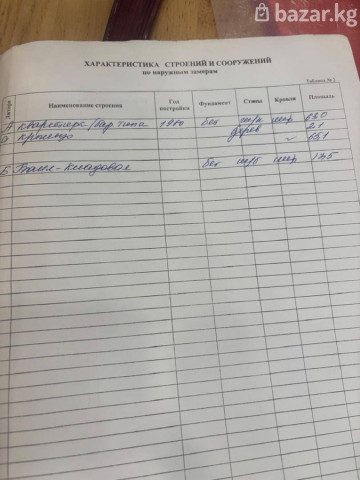 bazar.kg
ХАРАКТЕРИСТИКА СТРОЕНИЙ И СООРУЖЕНИЙ
по наружным замерам
Таблица №2
Литера Наименование строения Год постройки Фундамент Стены Кровля Площадь
А бар.типа бет шиф 63.0
а крыльцо дерев 2.1
65.1
Б Баня-Кладовая бет шиф 17.5